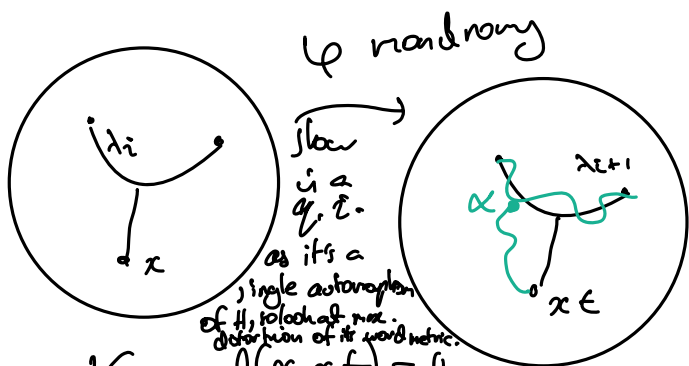 φ monodromy
λi
x
slow
is a
q.i.
as it's a
single automorphism
of H, so look at max.
distortion of its word metric.
λi+1
α
x t